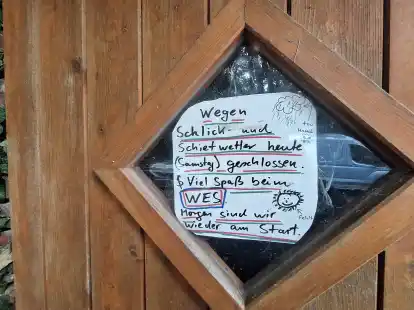 Wegen
Schlick- und
Schietwetter heute
(Samstg) geschlossen.
& Viel Spaß beim
WES
Morgen sind wir
wieder am Start.